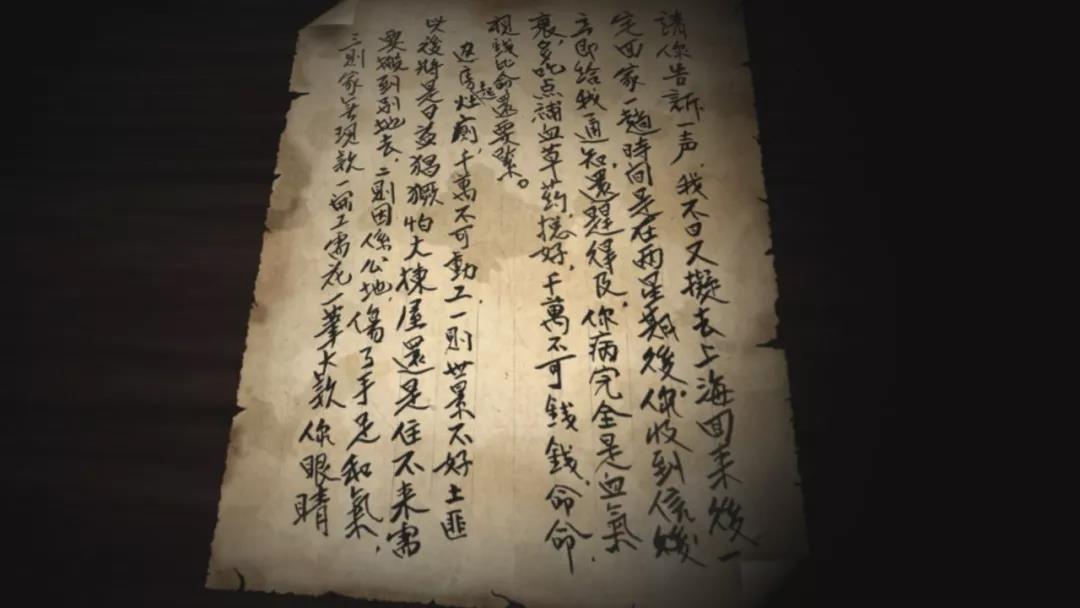 請你告訴一声，我不日又擬去上海回来後一
定回家一趟時间是在兩星期後，你收到信後
立即给我通知，還趕得及，你病完全是血氣
衰，多吃点補血草药搃好，千萬不可錢錢，命命，
視錢比命還要緊。
造房灶起廁，千萬不可動工，一則世景不好土匪
以後將是日益猖獗怕大棟屋還是住不来需
要搬到别地去，二則因係公地，傷了手足和氣，
三則家無現款，一畨工需花一筆大款你眼睛